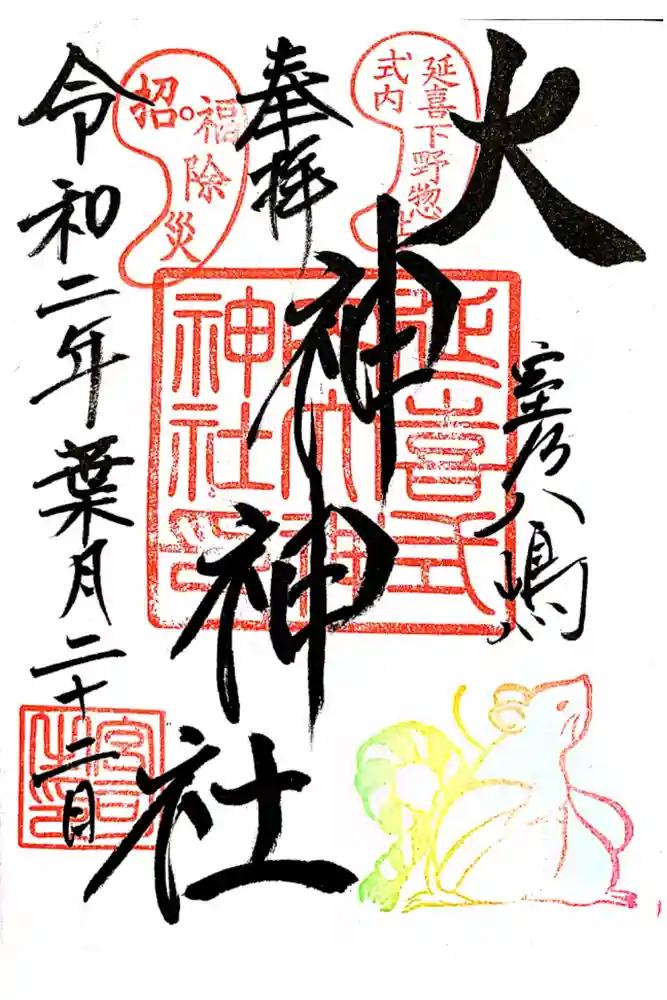 大神神社
室乃八嶋
延喜下野惣社
式内
奉拝
招福除災
延喜式
内大神
神社印
令和二年葉月二十二日
宮司
之印